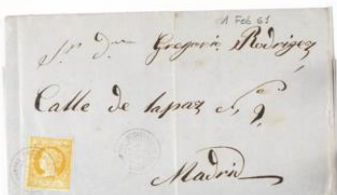 1 Feb 61
Sr. Dn Gregorio Rodrigez
Calle de la paz
Madrid